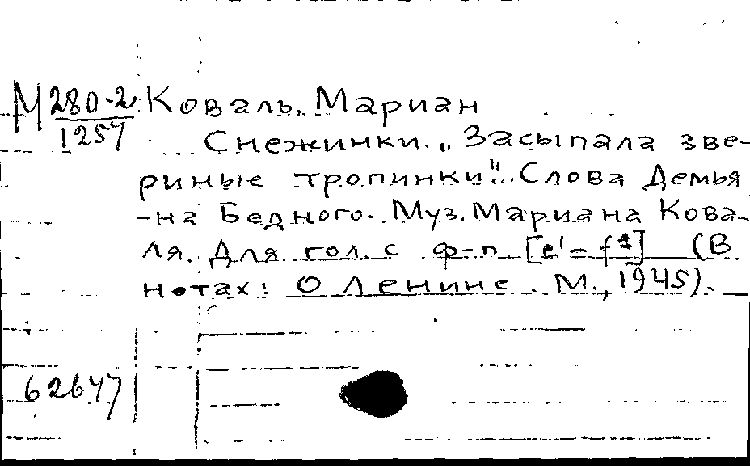 М 280-2 Коваль, Мариан
1257 Снежинки. „Засыпала зве-
риные тропинки". Слова Демья
-на Бедного. Муз. Мариана Кова-
ля. Для гол. с ф-п [e¹-f²] (В
нотах: О Ленине. М., 1945).
62647